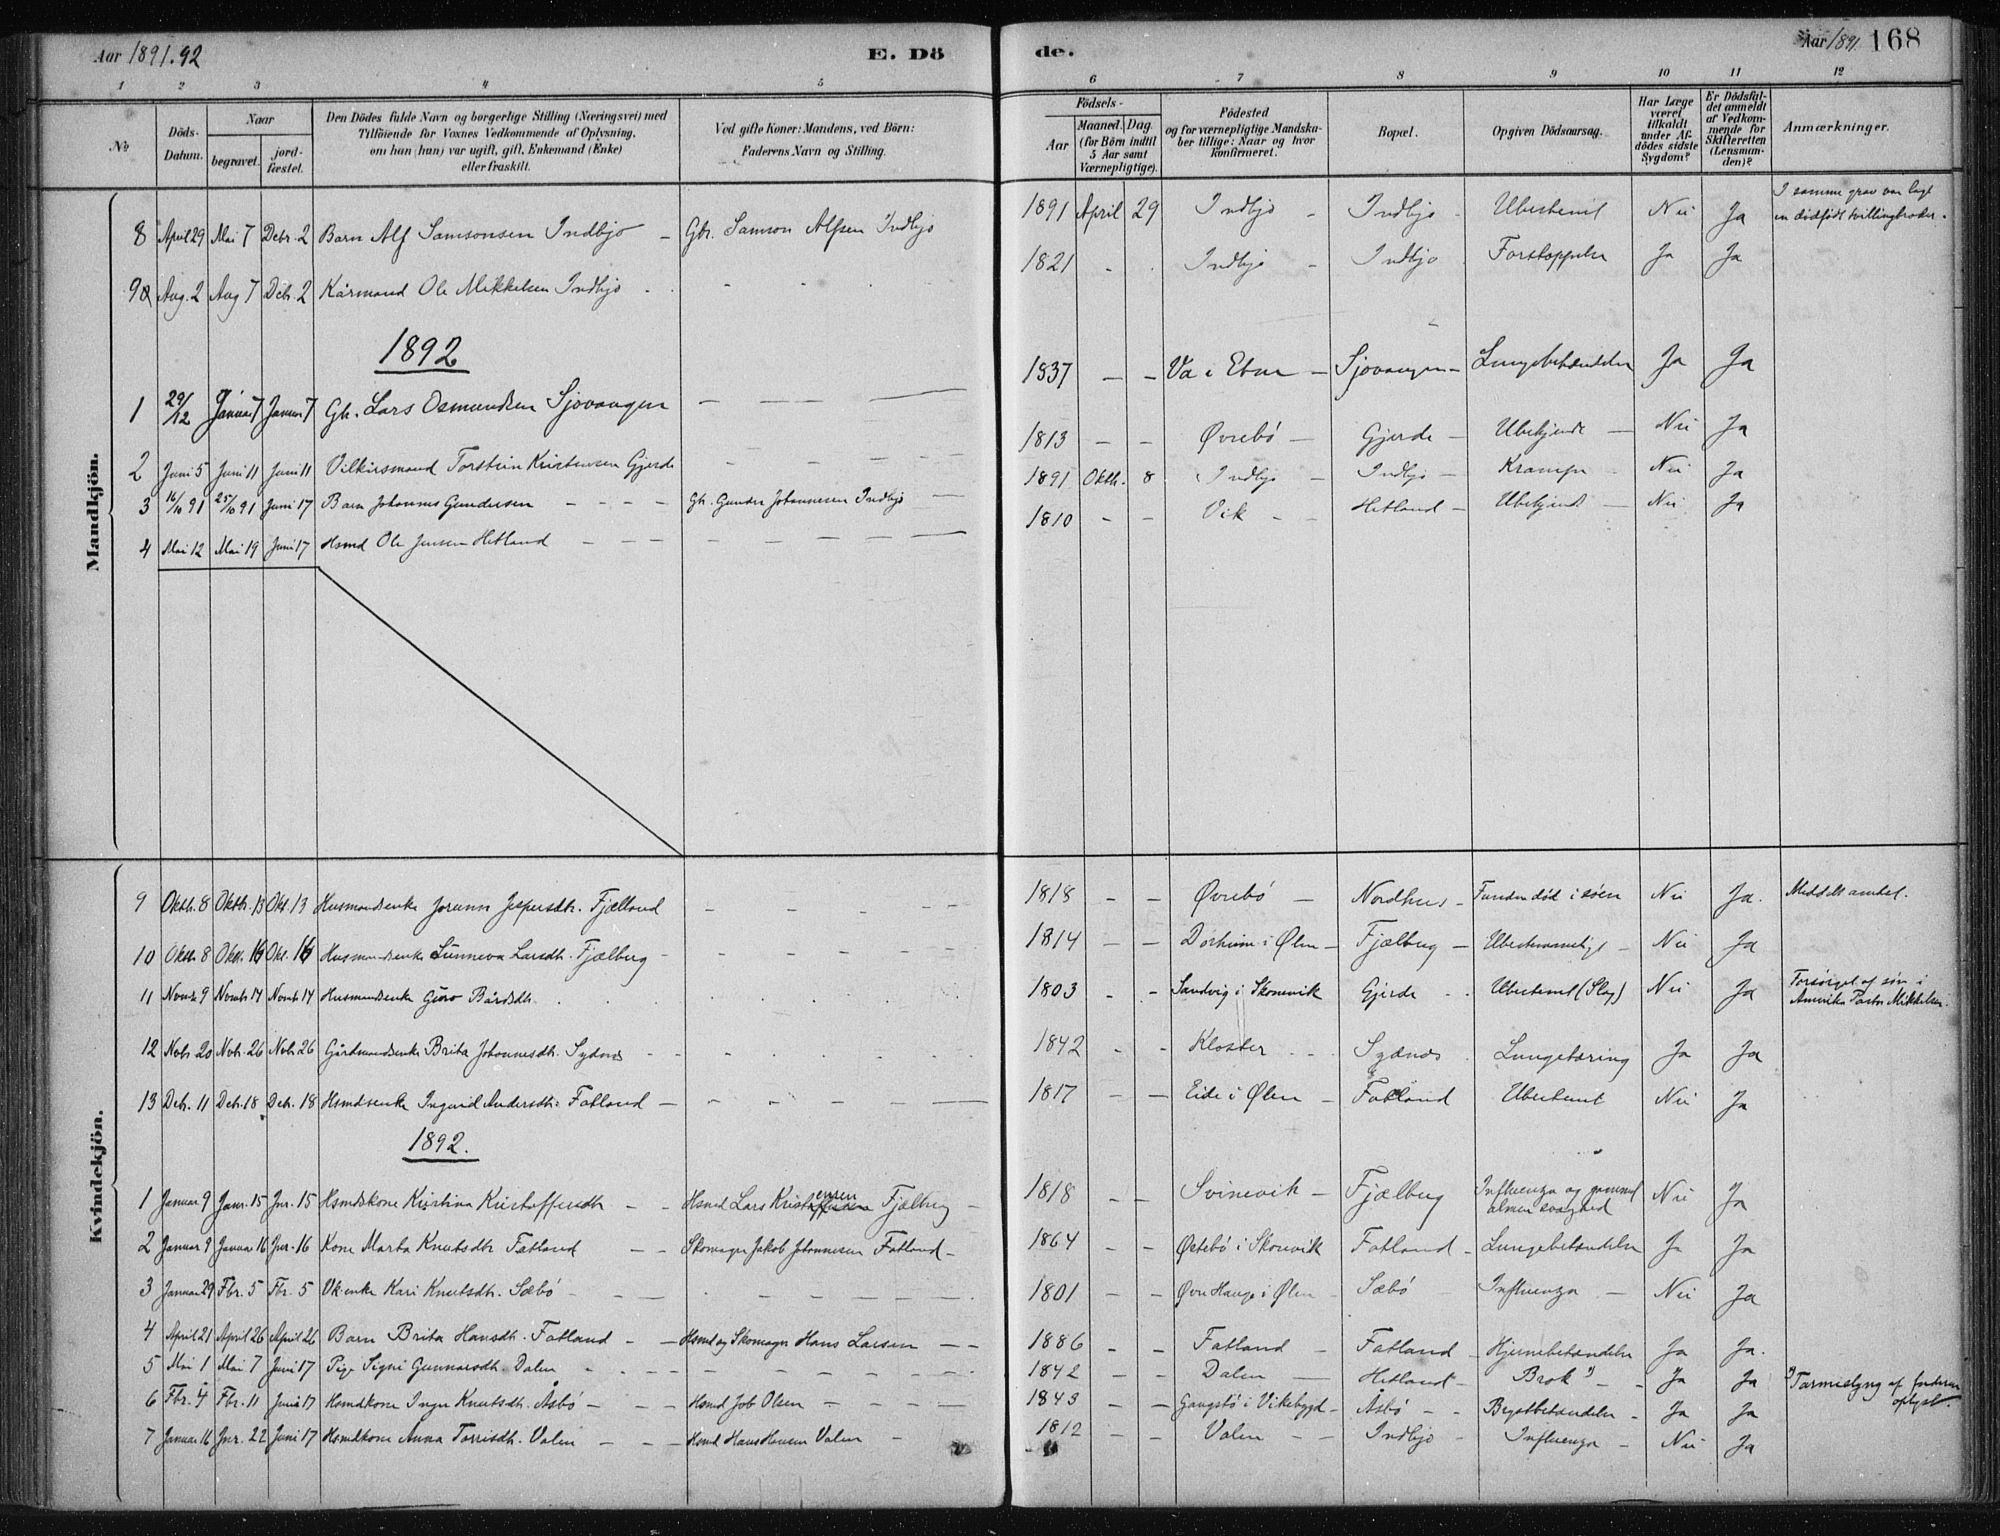 Aar 1891.92
E. Dö
de.
Aar 1891
168
1 2 3 4 5 6 7 8 9 10 11 12
No
Döds-Datum.
Naar
begravet.
jord-fæstet.
Den Dödes fulde Navn og borgerlige Stilling (Næringsvei) med
Tilföiende for Voxnes Vedkommende af Oplysning,
om han (hun) var ugift, gift, Enkemand (Enke)
eller fraskilt.
Ved gifte Koner: Mandens, ved Börn:
Faderens Navn og Stilling.
Födsels-
Aar
Maaned. Dag.
(for Börn indtil
5 Aar samt
Værnepligtige).
Födested
og for værnepligtige Mandska-
ber tillige: Naar og hvor
konfirmeret.
Bopæl.
Opgiven Dödsaarsag.
Har Læge
været
tilkaldt
under Af-
dödes sidste
Sygdom?
Er Dödsfal-
det anmeldt
af Vedkom-
mende for
Skifteretten
(Lensman-
den)?
Anmærkninger.
Mandkjön.
8 April 29 Mai 7 Debr. 2 Barn Alf Samsonsen Indbjo — Gbr. Samson Alfsen Indbjo 1891 April 29 Indbjo Indbjo Ubestemt Nei Ja I samme grav var lagt
en dødfødt tvillingbroder.
9 Aug. 2 Aug 7 Debr. 2 Kårmand Ole Mikkelsen Indbjo 1821 Indbjo Indbjo Forstoppelse Ja Ja
1892
1 29/12 Januar 7 Januar 7 Gb. Lars Osmundsen Sjovangen 1837 Va i Etne Sjovangen Lungebetændelse Ja Ja
2 Juni 5 Juni 11 Juni 11 Vilkårsmand Torstein Kristensen Gjerde 1813 Øvrebö Gjerde Ubekjendt Nei Ja
3 16/10 91 25/10 91 Juni 17 Barn Johannes Gundersen Gb. Gunder Johannesen Indbjo 1891 Oktb. 8 Indbjo Indbjo Krampe Nei Ja
4 Mai 12 Mai 19 Juni 17 Hsmd Ole Jensen Hetland 1810 Vik Hetland Ubekjendt Nei Ja
Kvindekjön.
9 Oktb. 8 Oktb. 13 Okt. 13 Husmandsenke Jorunn Jespersdtr. Fjelland 1818 Øvrebö Nordhus Funden död i söen Nei Ja. Meddelt amtet.
10 Oktb 8 Okt. 16 Okt. 16 Husmandsenke Sunneva Larsdtr. Fjælberg 1814 Dorheim i Ølen Fjælberg Ubestemmelige Nei Ja
11 Novbr 9 Novbr 14 Novbr 14 Husmandsenke Guro Bårdsdtr. 1803 Sandvig i Skonevik Gjerde Ubestemt (Slag) Nei Ja Forsørget af søn i
Amerika Mikkelsen.
12 Nvbr. 20 Nvbr. 26 Nvbr. 26 Gårdmandsenke Brita Johannesdtr. Sydnes 1842 Kloster Sydnes Lungetæring Ja Ja
13 Debr. 11 Debr. 18 Debr. 18 Hsmdsenke Ingerid Andersdtr. Fatland 1817 Eide i Ølen Fatland Ubestemt Nei Ja
1892.
1 Januar 9 Janr. 15 Jnr. 15 Hsmdskone Kristina Kristoffersdtr Hsmd Lars Kristensen Fjælberg 1818 Svinevik Fjælberg Influenza og gammel
almen svaghed Nei Ja
2 Januar 9 Januar 16 Jnr. 16 Kone Marta Knutsdtr. Fatland Skomager Jakob Johannesen Fatland 1864 Østebö i Skonevik Fatland Lungebetændelse Ja Ja
3 Januar 29 Fbr. 5 Fbr. 5 Vk.enke Kari Knutsdtr. Sæbö 1801 Øvre Hauge i Ølen Sæbö Influenza Nei Ja
4 April 21 April 26 April 26 Barn Brita Hansdtr. Fatland Hsmd og Skomager Hans Larsen 1886 Fatland Fatland Hjernebetændelse Ja Ja.
5 Mai 1 Mai 7 Juni 17 Pige Signi Gunnarsdtr. Dalen 1842 Dalen Hetland Brok *) Ja Ja *) Tarmslyng af forældren
oplyst.
6 Fbr. 4 Fbr. 11 Juni 17 Hsmdkone Inger Knutsdtr. Åsbö Hsmd Job Olsen 1843 Gangstö i Vikebygd Åsbö Brystbetændelse Ja Ja
7 Januar 16 Jnr. 22 Juni 17 Hsmdkone Anna Torrisdtr. Valen Hsmd Hans Hansen Valen 1812 Valen Indbjo Influenza Nei Ja